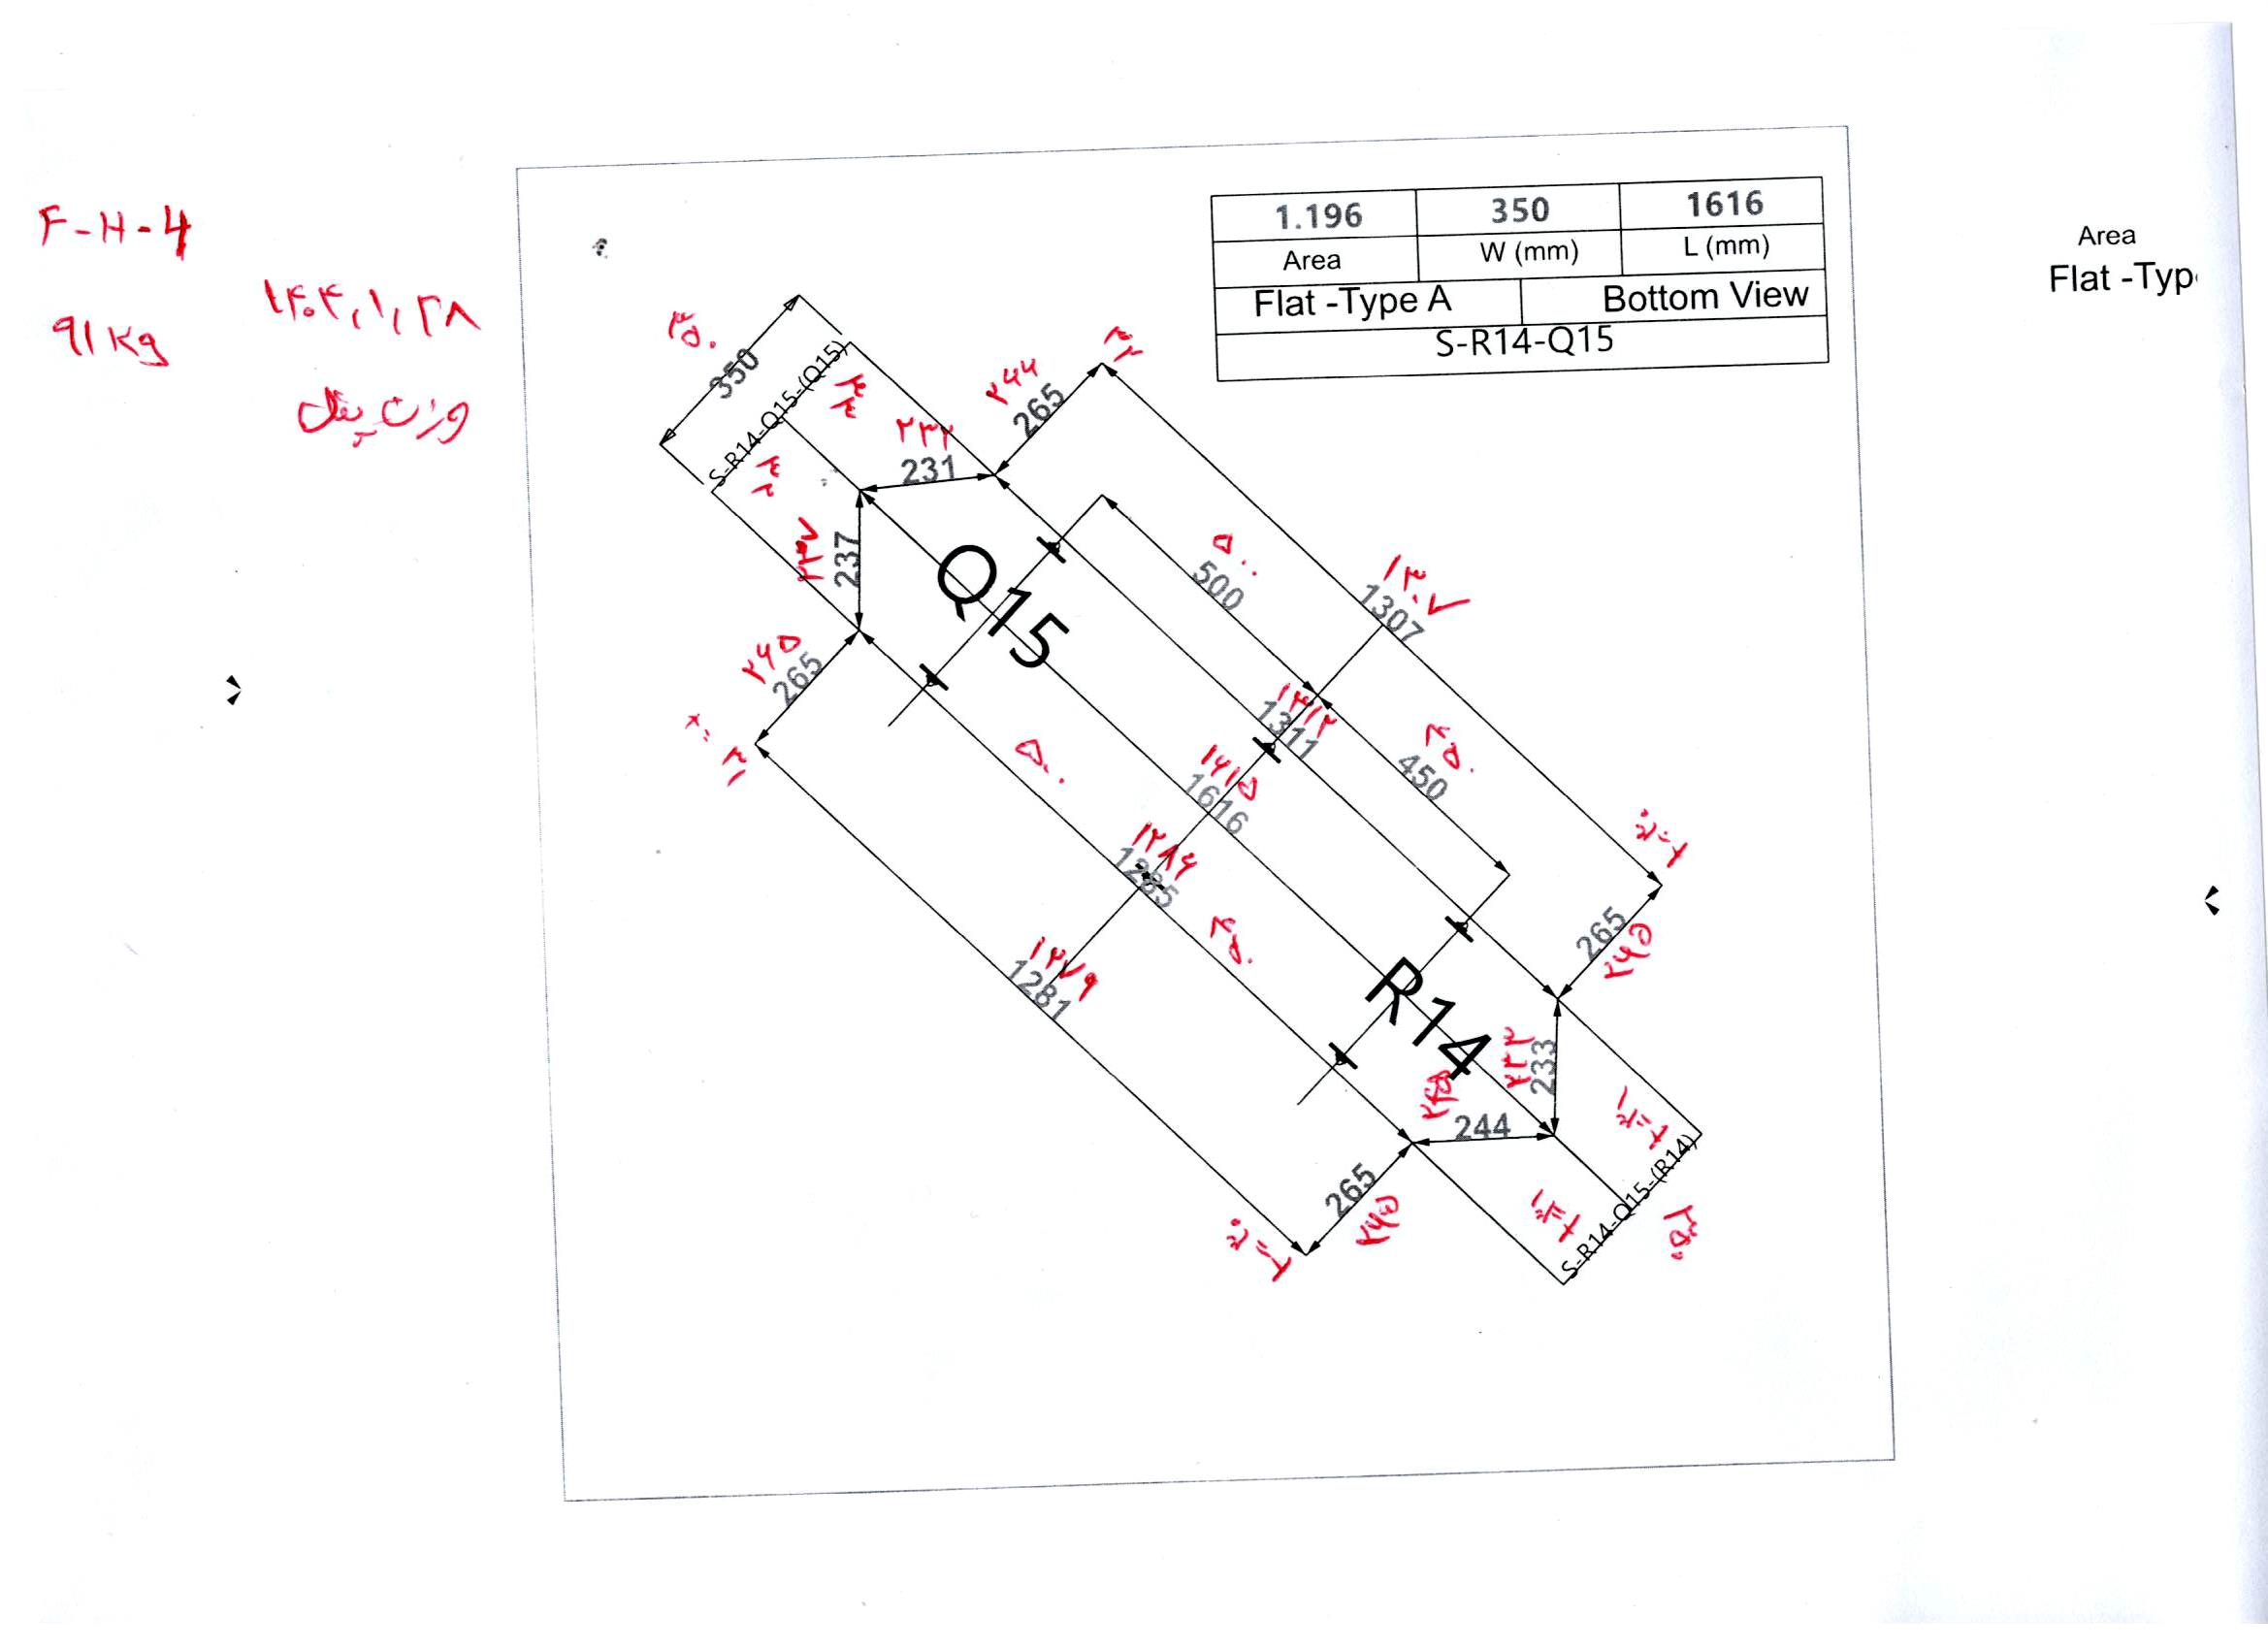 F-H-4
91 kg
۱۴۰۴,۱,۲۸
وزن پنل
1.196 350 1616
Area W (mm) L (mm)
Flat -Type A Bottom View
S-R14-Q15
Area
Flat -Typ
۳۵۰
350
S-R14-Q15-(Q15)
۲۶۶
265
۲۳۲
231
۲۳۷
237
Q15
۵۰۰
500
۱۳۰۷
1307
۲۶۵
265
۱۳۱۲
1311
۴۵۰
450
۵۰۰
۱۶۱۵
1616
۱۲۸۶
1285
۴۵۰
۱۲۷۹
1281
265
۲۶۵
R14
۲۳۳
233
۲۴۵
244
265
۲۶۵
S-R14-Q15-(R14)
۳۵۰